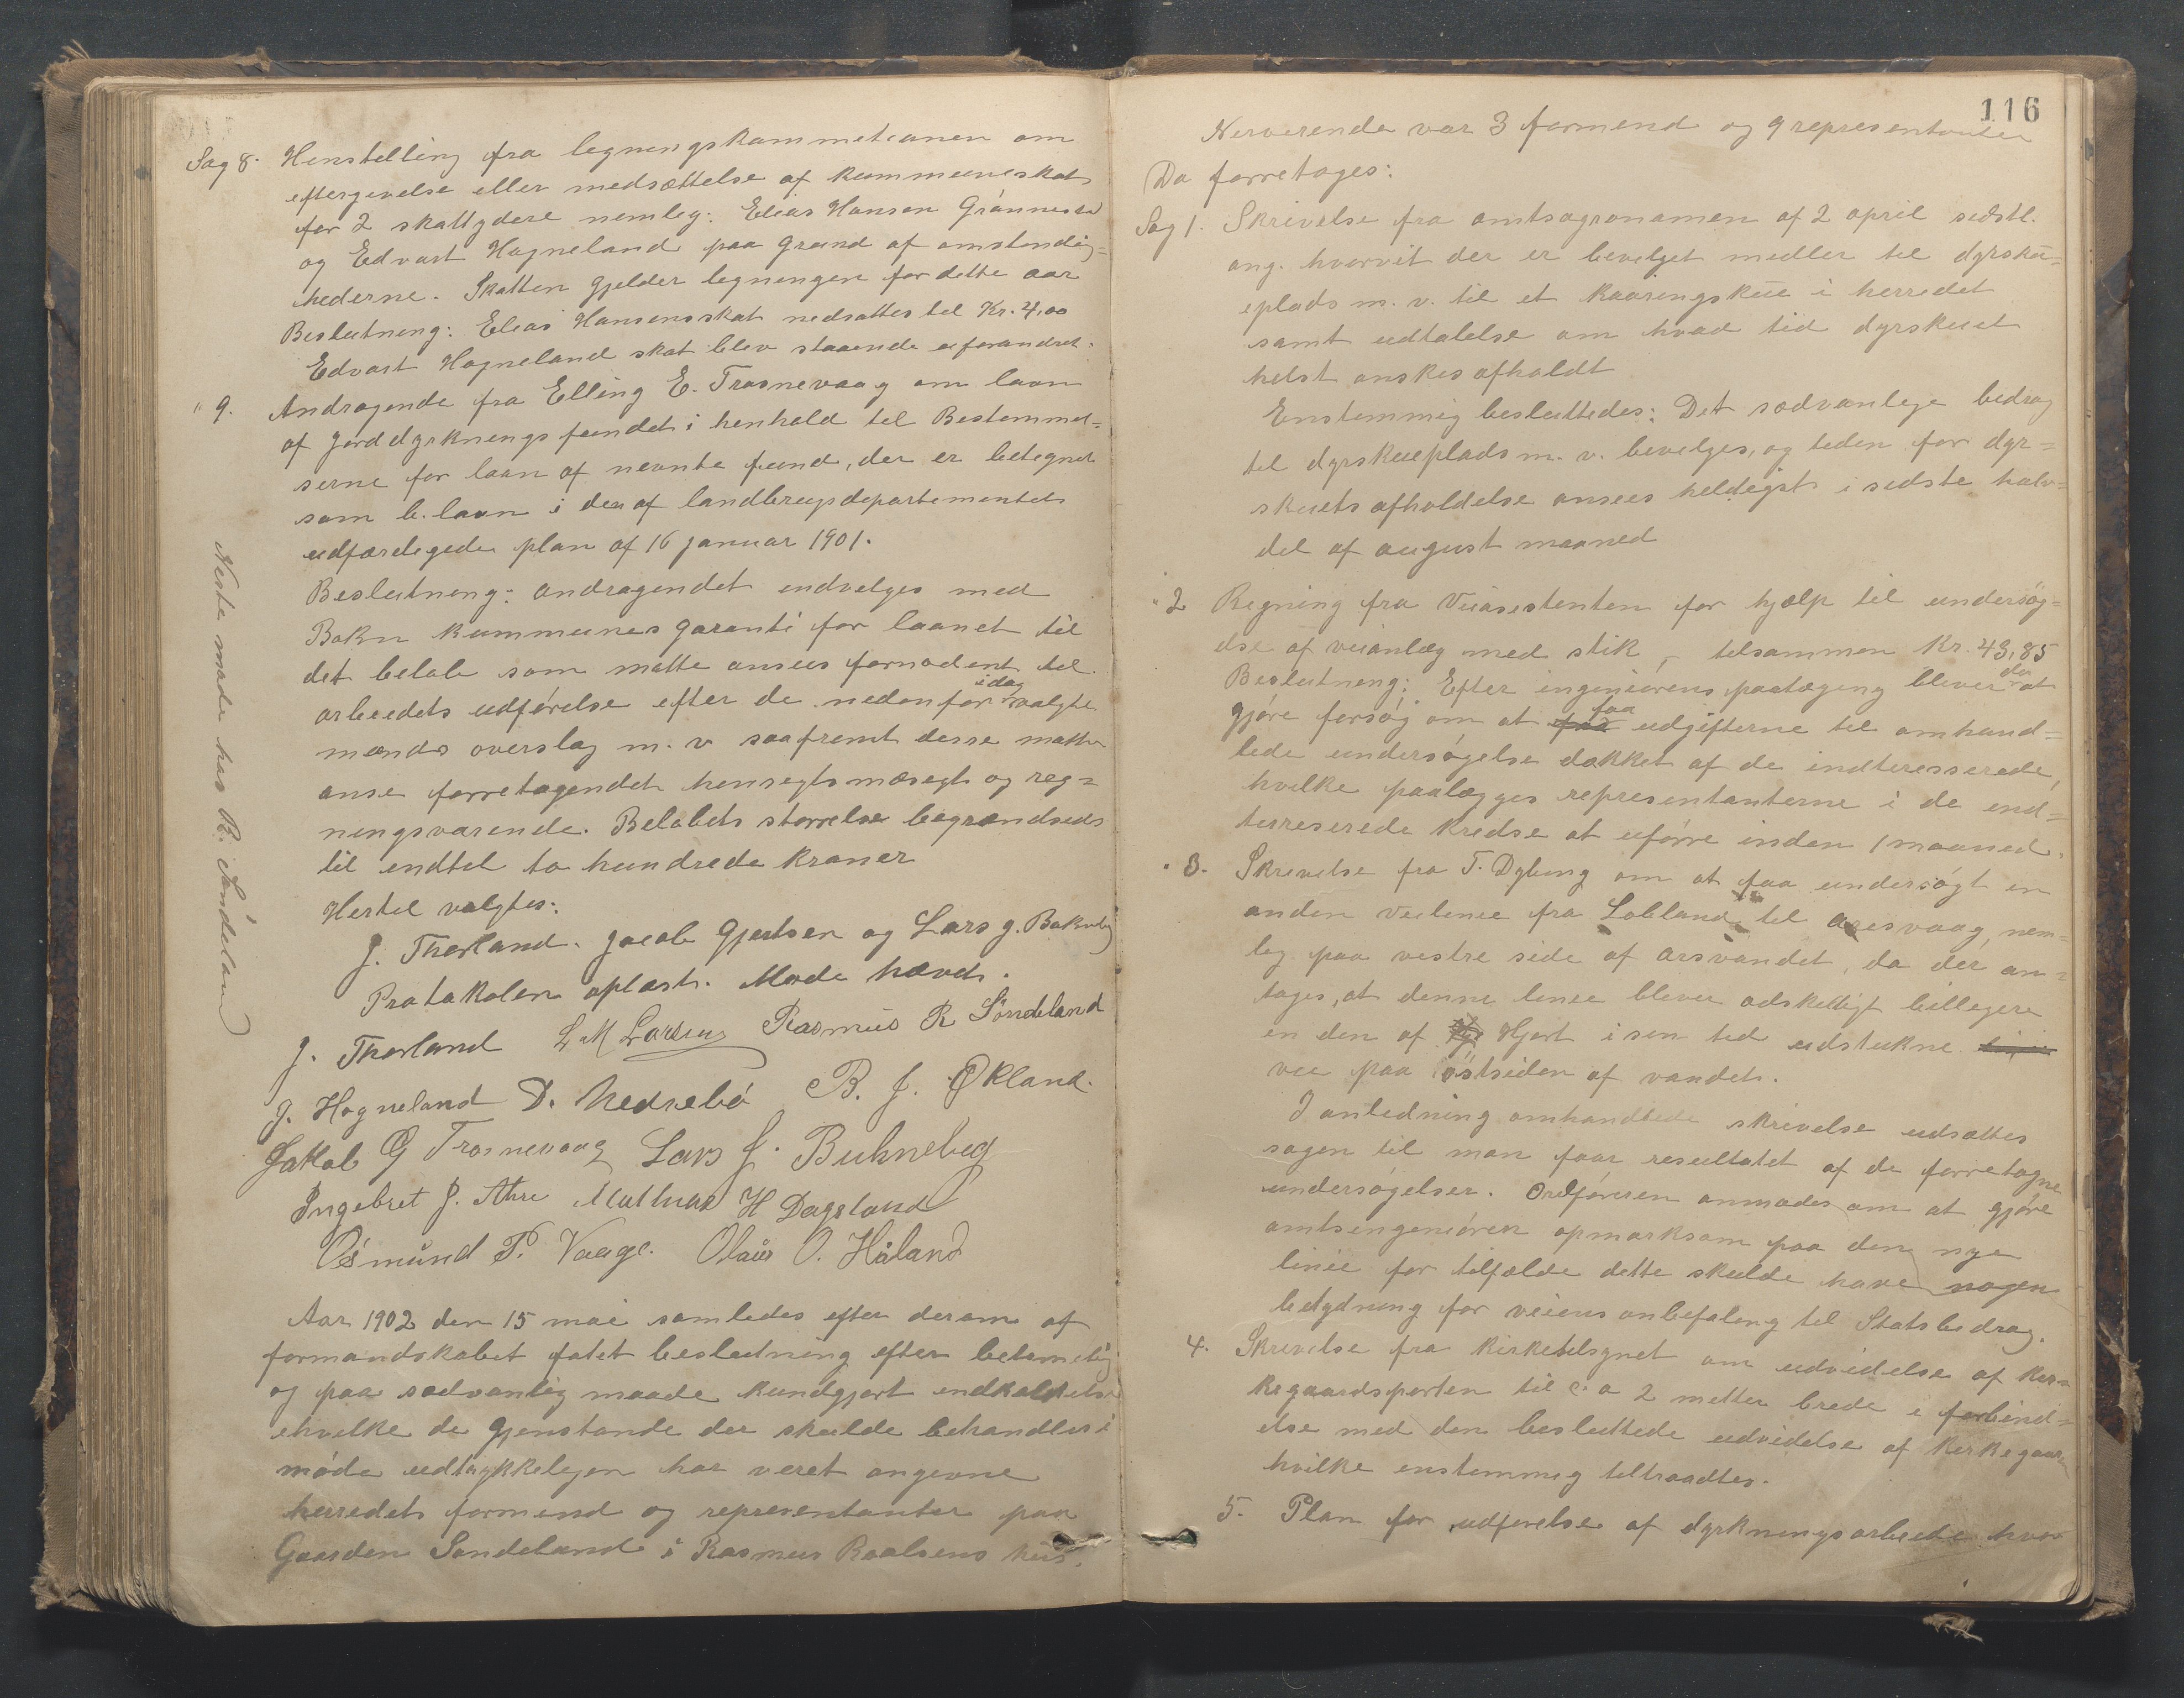 Sag 8. Henstelling fra legningskommetionen om
eftergivelse eller nedsættelse af kommuneskat
for 2 skattydere nemleg: Elias Hansen Grønnestad
og Edvart Hogneland paa grund af omstendig=
hederne. Skatten gjelder legningen for dette aar
Beslutning: Elias Hansens skat nedsattes til Kr. 4,00
Edvart Hogneland skat blev staaende uforandret.
" 9. Andragende fra Elling E. Trosnevaag om laan
af jorddyrkningsfundet i henhold til Bestemmel=
serne for laan af nevnte fund, der er betegnet
som b. laan i den af landbrugsdepartementet
udfærdigede plan af 16 januar 1901.
Beslutning: andragendet indvelges med
Bokn kummunes garanti for laanet til
det beløb som måtte ansees fornødent til
idag
arbeidets udførelse efter de nedenfor valgte
mænds overslag m. v saafremt desse måtte
anse forretagendet hensegtsmæsegt og reg=
ningsvarende. Beløbets størrelse begrændseds
til indtel to hundrede kroner
Hertel valgtes:
J. Thorland. Jacob Gjertsen og Lars J. Boknebg
Protokolen oplæst. Møde hævet.
J. Thorland L M Larsen Rasmus R Søndeland
J. Hogneland D. Nedrebø B. J. Økland.
Jakob G Trosnevaag Lars J. Buknebeg
Ingebret J. Are Mathias H Dagsland
Osmund P. Vaage. Olaus O. Håland
Neste møde hos R. Søndeland
Aar 1902 den 15 mai samledes efter derom af
formandskabet fatet beslutning efter betimelig
og paa sædvanlig maade kundgjort indkaldelse
ihvilke de gjenstande der skulde behandles i
møde udtrykkeligen har veret angivne
herredets formend og representanter paa
Gaarden Søndeland i Rasmus Roalsens hus.
116
Nerverende var 3 formend og 9 representanter
Da forretages:
Sag 1. Skrivelse fra amtsagronomen af 2 april sidstl.
ang. hvorvit der er bevelget medler til dyrsku=
eplads m. v. til et kaaringskue i herredet
samt udtalelse om hvad tid dyrskuet
helst ønskes afholdt
Enstemmig besluttedes: Det sædvanlege bedrag
til dyrskueplads m. v. bevelges, og tiden for dyr=
skuets afholdelse ansees heldigst i sidste halv=
del af august maaned
" 2 Regning fra Veiasistenten for hjælp til undersøg=
else af veianlæg med stik, telsammen Kr. 43,85
Beslutning: Efter ingeniørens paatægning blever der at
gjøre forsøg om at faa udgifterne til omhand=
lede undersøgelse dækket af de indteresserede,
hvilke paalægges representanterne i de end=
terreserede kredse at uførre inden 1 maaned.
" 3. Skrevelse fra T. Dybing om at faa undersøgt en
anden veilenie fra Løbland til Aresvaag, nem=
leg paa vestre side af Arsvandet, da der an=
tages, at denne linie blever adskelligt billegere
en den af Hjort i sin tid udstukne
vei paa østsiden af vandet.
I anledning omhandlede skrivelse udsættes
sagen til man faar resultatet af de forretagne
undersøgelser. Ordføreren anmodes om at gjøre
amtsengeniøren opmærksom paa den nye
linie for tilfælde dette skulde have nogen
betydning for veiens anbefaling til Statsbedrag.
4. Skrivelse fra kirketelsynet om udvidelse af kir=
kegaardsporten til c. a 2 metter brede i forbind=
else med den besluttede udvidelse af kirkegaarden
hvilke enstemmig teltraadtes.
5. Plan for udførelse af dyrkningsarbeide hvor